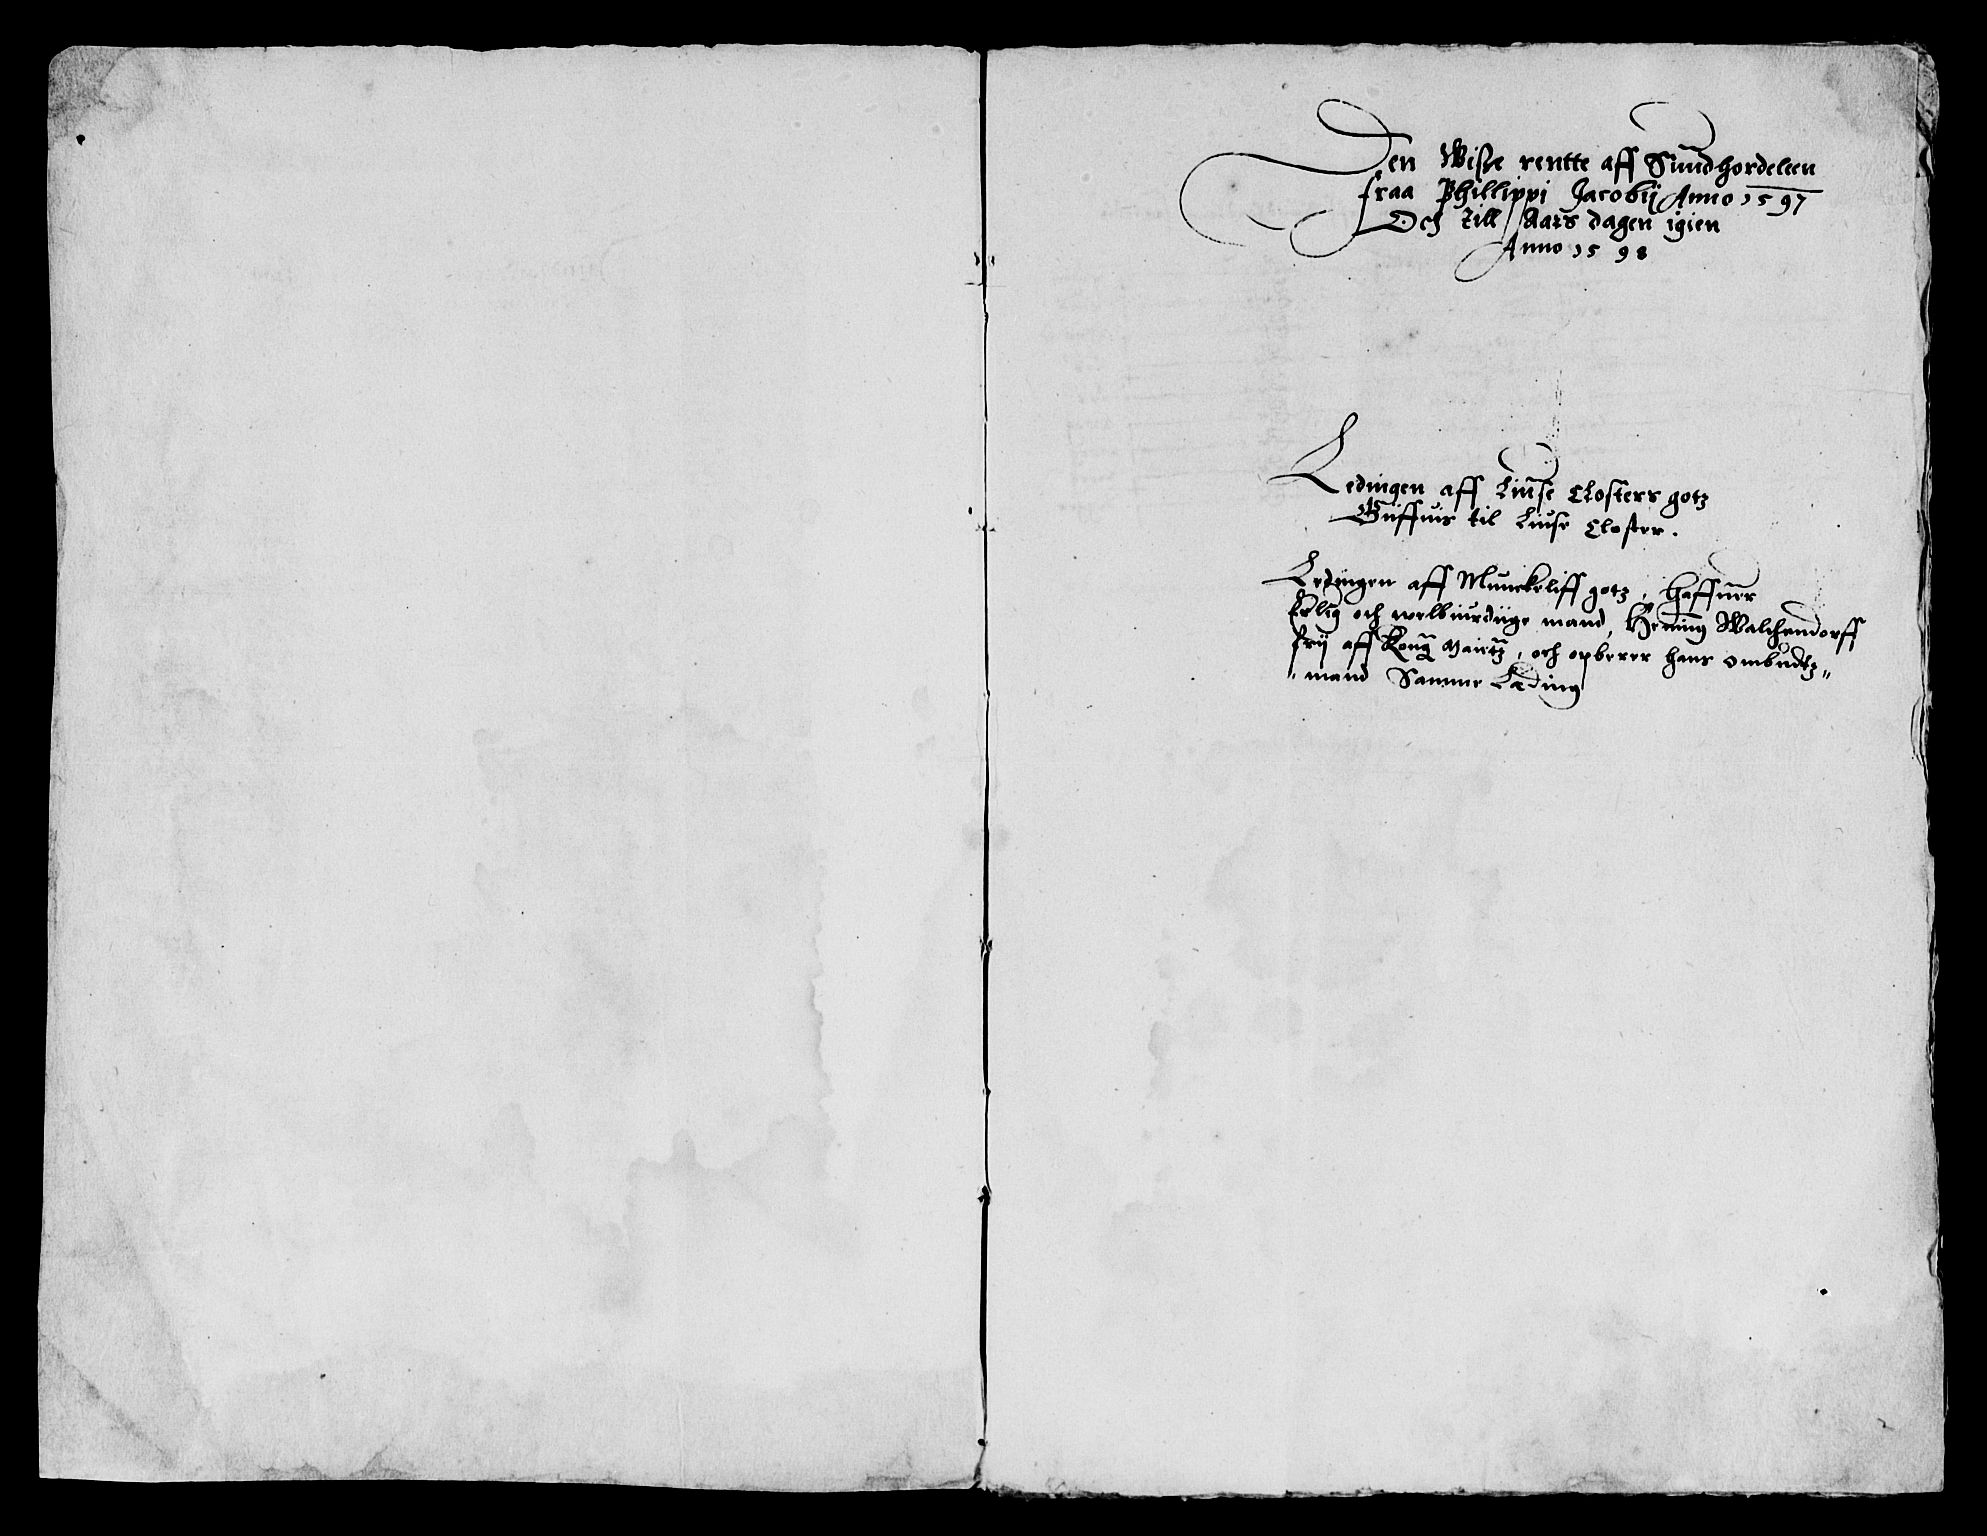 Den Wisse rentte aff Sundhordeleen
fraa Phillippi Jacobij Anno 1597
Och till Aars dagen igien
Anno 1598
Ledingen aff Liuse Closters gotz
Giffuis til Liuse Closter.
Ledingen aff Munckeliff gotz, haffuer
Erlig och welbiurdige mand, Hening Walchendorff
frij aff Kong: Maietz, och opberer hans ombudtz"
"mand Samme Leding
2